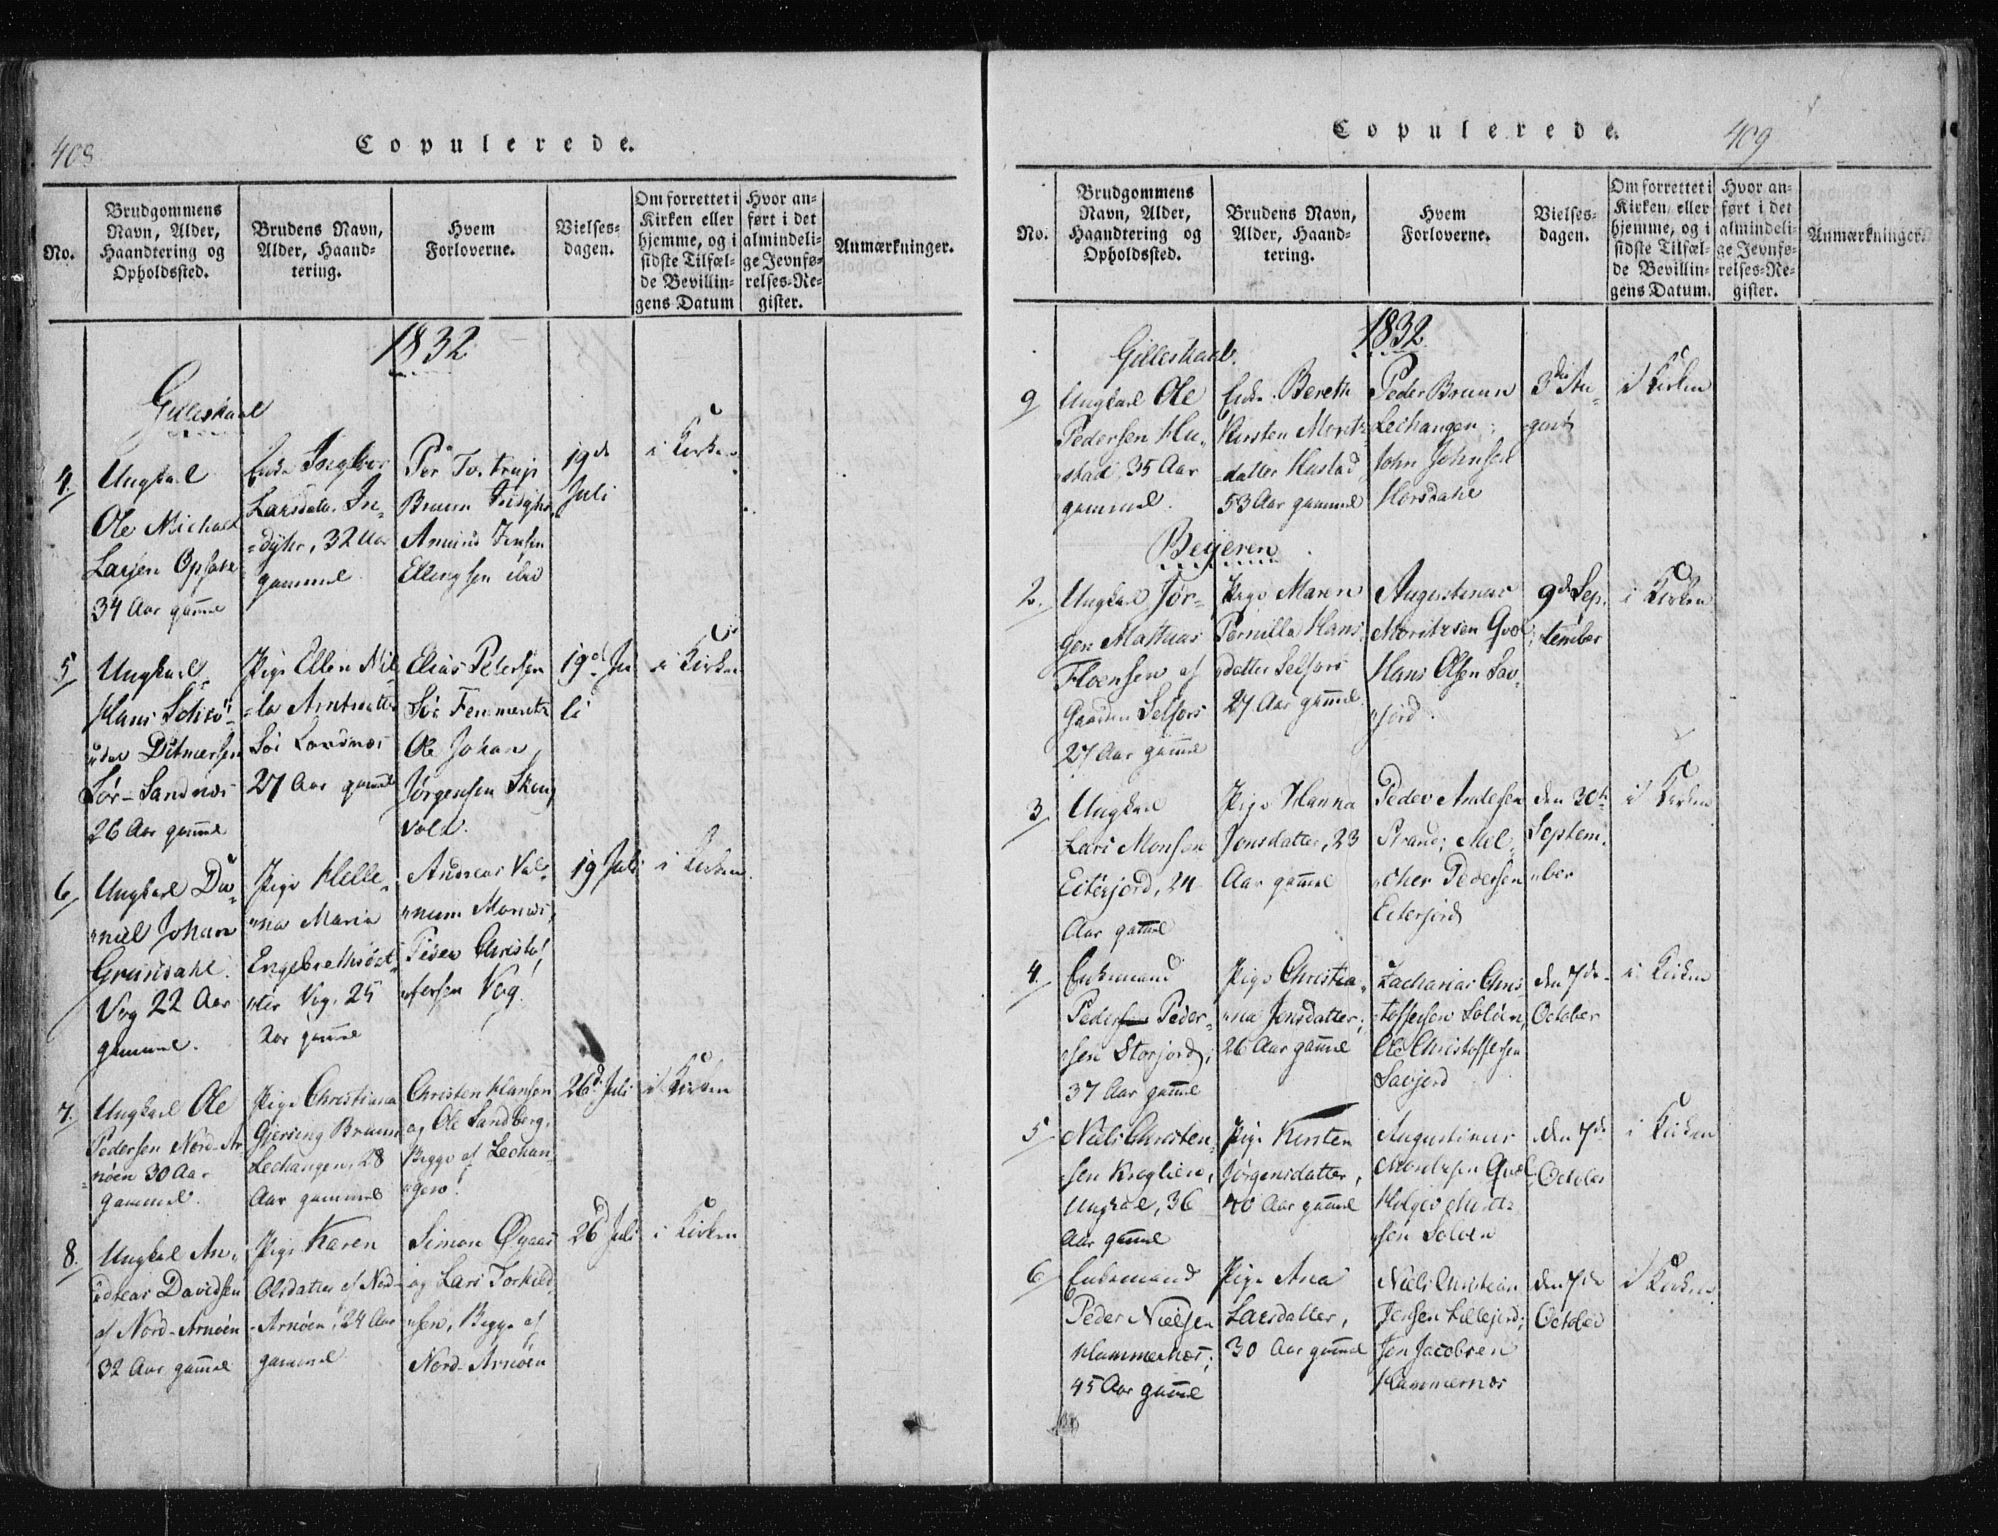 408
Copulerede.
No.
Brudgommens
Navn, Alder,
Haandtering og
Opholdssted.
Brudens Navn,
Alder, Haand-
tering.
Hvem
Forloverne.
Vielses-
dagen.
Om forrettet i
Kirken eller
hjemme, og i
sidste Tilfæl-
de Bevillin-
gens Datum
Hvor an-
ført i det
almindeli-
ge Jevnfø-
relses-Re-
gister.
Anmærkninger.
1832
Gilleskaal
4.
Ungkarl
Ole Michael
Larsen
34 Aar gammel
Enke Ingebor
Larsdatter In-
=dyhr, 32 Aar
gammel
Per Tostrup
Bruun Indyhr,
Amund Jensen
Ellingsen ibid
19de
Juli
i Kirken
5
Ungkarl
Hans
Ditmersen
Sør-Sandnæs
26 Aar gammel
Pige Ellen Nil-
=la Arntsdatter
Sør Sandnæs
27 Aar gammel
Elias Petersen
Ole Johan
Jørgensen
vold.
19de Ju
li
i Kirken
6
Ungkarl Da-
"niel Johan
Grundahl.
Vog 22 Aar
gammel.
Pige Helle-
"na Maria
Engebrethsdat-
"ter Vog, 25
Aar gammel
Andreas
Peder Christo-
"fersen Vog.
19 Juli
i Kirken
7.
Ungkarl Ole
Pedersen Nord-Ar
nöen 30 Aar
gammel.
Pige Christiana
Gjersing Bruun
Lechangen, 28
Aar gammel
Christen Hansen
og Ole Sandberg,
Begge af Lechan-
"gen.
26de Juli
i Kirken
8.
Ungkarl An-
"dreas Davidsen
af Nord-Arnöen
32 Aar gammel
Pige Karen
Olsdatter af Nord-
-Arnöen, 24 Aar
gammel
Simon Øgaas
og Lars Torkild-
"sen, Begge af
Nord-Arnöen
26d Juli
i Kirken
409
Copulerede.
No.
Brudgommens
Navn, Alder,
Haandtering og
Opholdssted.
Brudens Navn,
Alder, Haand-
tering.
Hvem
Forloverne.
Vielses-
dagen.
Om forrettet i
Kirken eller
hjemme, og i
sidste Tilfæl-
de Bevillin-
gens Datum.
Hvor an-
ført i det
almindeli-
ge Jevnfø-
relses-Re-
gister.
Anmærkninger.
1832
Gilleskaal.
9
Ungkarl Ole
Pedersen Hu-
stad, 35 Aar
gammel.
Enke Bereth
Kirsten Moritz
datter Hustad
53 Aar gammel
Peder Bruun
Lechangen,
John Johnsen
Horsdahl
3die Au-
gust
i Kirken
Beijeren
2.
Ungkarl Jør-
gen Mathias
Floensen af
Gaarden Selfors
27 Aar gammel
Pige Maren
Pernilla Hans
datter Selfors
27 Aar gammel.
Augustinus
Moritzsen
Hans Olsen Sav-
"jord
9de Sep-
tember
i Kirken
3
Ungkarl
Lars Monsen
Eiterjord, 24
Aar gammel
Pige Hanna
Jonsdatter, 23
Aar gammel
Peder Andersen
Strand; Mel-
"cher Pedersen
Eiterjord
den 30te
Septem-
"ber
i Kirken
4.
Enkemand
Peder Peder-
"sen Storjord;
37 Aar gammel
Pige Christia-
"na Jensdatter;
26 Aar gammel
Zacharias Chris-
"toffersen Solöen,
Ole Christoffersen
Savjord
den 7de
October
i Kirken
5
Niels Christen-
"sen
Ungkarl, 36
Aar gammel
Pige Kirsten
Jørgensdatter,
40 Aar gammel
Augustinus
Moritzsen
Holger
"sen Solöen
den 7de
October
i Kirken
6
Enkemand
Peder Nielsen
Hammernæs;
45 Aar gammel
Pige Ana
Larsdatter,
30 Aar gammel
Niels Christian
Jensen Lillejord;
Jon Jacobsen
Hammernæs
den 7de
October
i Kirken